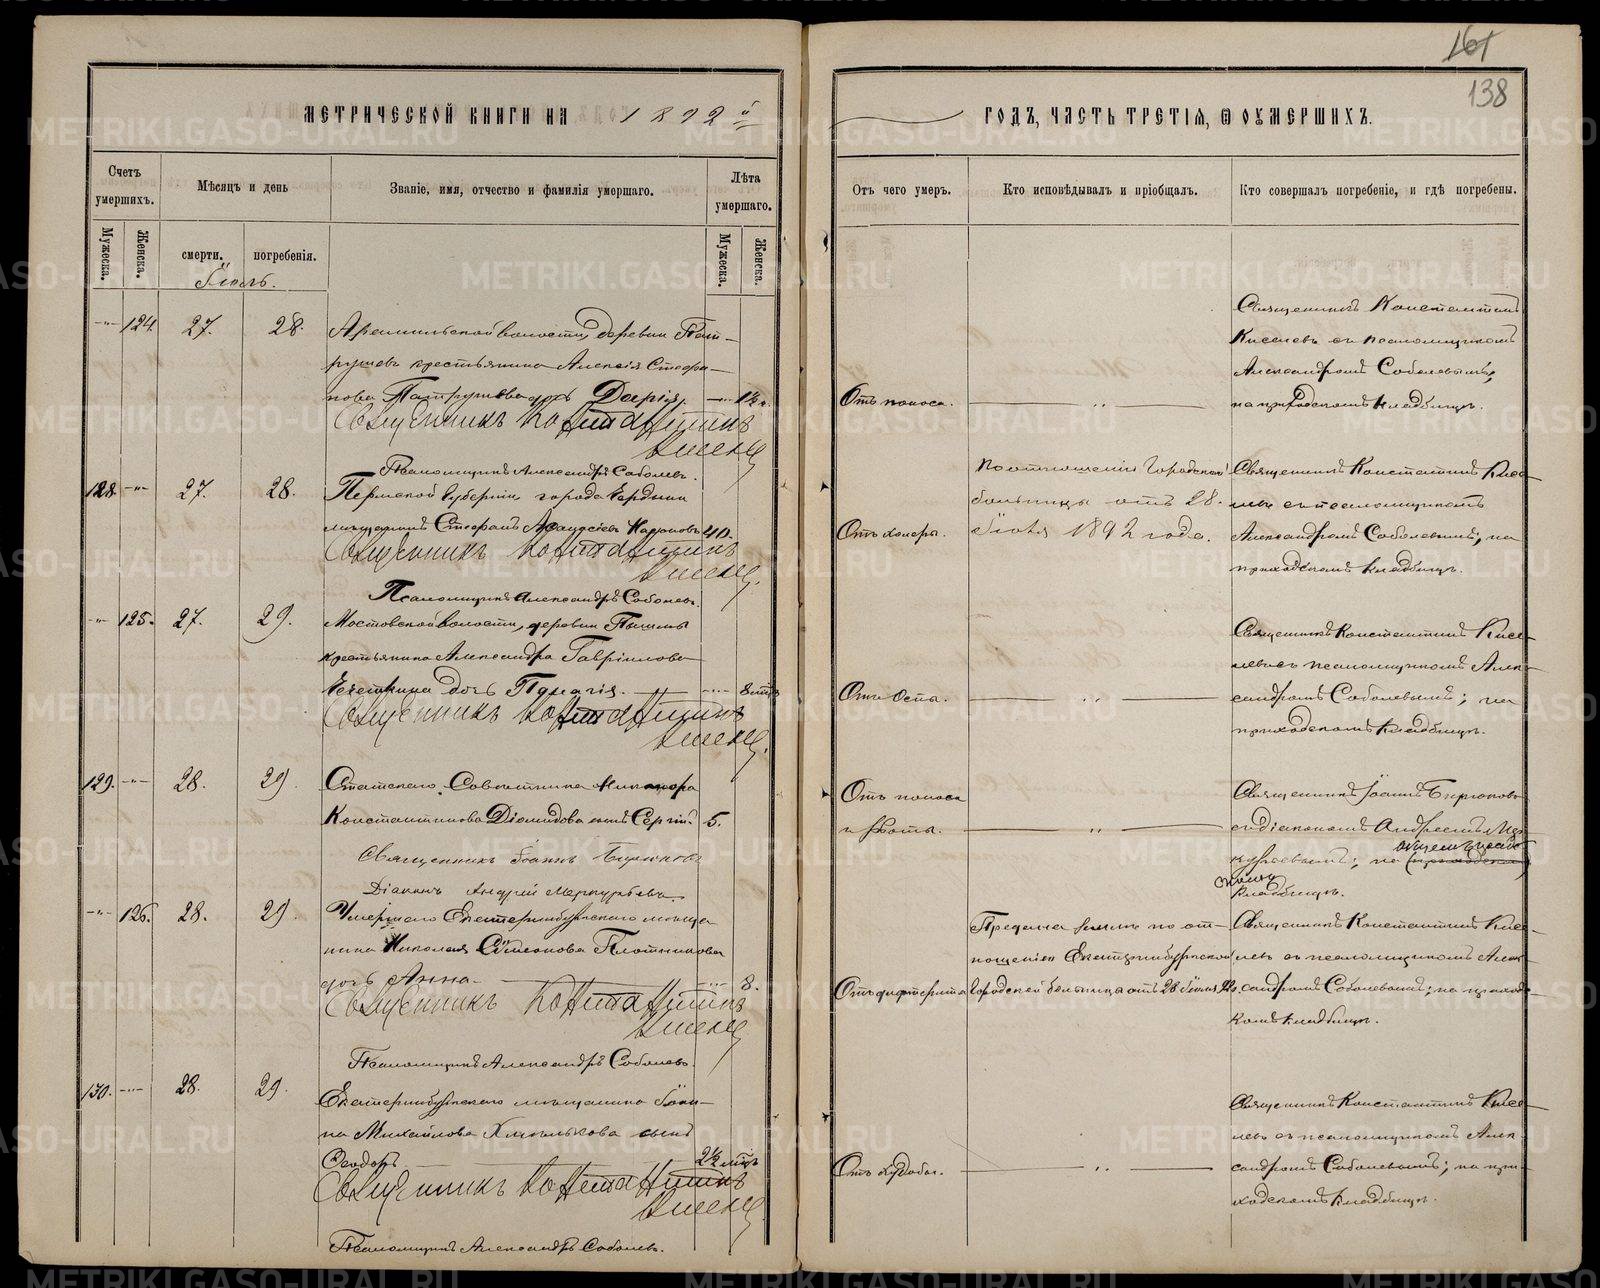 161
138
МЕТРИЧЕСКОЙ КНИГИ НА 1892й
ГОДЪ, ЧАСТЬ ТРЕТІЯ, Ѿ ОУМЕРШИХЪ.
Счетъ умершихъ.
Мѣсяцъ и день
Званіе, имя, отчество и фамилія умершаго.
Лѣта умершаго.
Отъ чего умеръ.
Кто исповѣдывалъ и пріобщалъ.
Кто совершалъ погребеніе, и гдѣ погребены.
Мужеска.
Женска.
смерти.
погребенія.
Мужеска.
Женска.
Іюль.
124. 27. 28.
Арамильской волости, деревни Пат-
рушевъ крестьянина Алексія Стефа-
нова Патрушева дочь Дарія.
Священникъ Константинъ
Киселев
Псаломщикъ Александръ Соболевъ.
Отъ поноса.
Священникъ Константинъ
Киселевъ съ псаломщикомъ
Александромъ Соболевымъ,
на приходскомъ кладбищѣ.
128. 27. 28.
Пермской губерніи, города Чердыни
мѣщанинъ Стефанъ 40.
Священникъ Константинъ
Киселев.
Псаломщикъ Александръ Соболевъ.
Отъ холеры.
По отношенію Городской
больницы отъ 28.
Іюля 1892 года.
Священникъ Константинъ Кисе-
левъ съ псаломщикомъ
Александромъ Соболевымъ; на
приходскомъ кладбищѣ.
125. 27. 29.
Мостовской волости, деревни Пышмы
крестьянина Александра Гавріилова
дочь Пелагія. 8 мѣс
Священникъ Константинъ
Киселев.
Отъ Оспы.
Священникъ Константинъ Кисе-
левъ съ псаломщикомъ Алек-
сандромъ Соболевымъ; на
приходскомъ кладбищѣ.
129. 28. 29
Статскаго Совѣтника Никанора
Константинова Діомидова сынъ Сергій. 5.
Священникъ Іоаннъ Бирюковъ
Діаконъ Андрей Меркурьевъ.
Отъ поноса
и рвоты.
Священникъ Іоаннъ Бирюковъ
съ діакономъ Андреемъ Мер-
курьевымъ; на
кладбищѣ.
126. 28. 29
Умершаго Екатеринбургскаго мѣща-
нина Николая Симеонова Плотникова
дочь Анна. 8.
Священникъ Константинъ
Киселев
Псаломщикъ Александръ Соболевъ.
Отъ дифтерита
Предана землѣ по от-
ношенію Екатеринбургской
Городской больницы отъ 28 Іюля 92 г.
Священникъ Константинъ Кисе-
левъ съ псаломщикомъ Алек-
сандромъ Соболевымъ; на приход-
комъ кладбищѣ.
130. 28. 29
Екатеринбургскаго мѣщанина
Михайлова Хмѣлькова сынъ
Ѳеодоръ 2½ мѣс
Священникъ Константинъ
Киселев
Псаломщикъ Александръ Соболевъ.
Отъ худобы.
Священникъ Константинъ Кисе-
левъ съ псаломщикомъ Алек-
сандромъ Соболевымъ; на при-
ходскомъ кладбищѣ.
METRIKI.GASO-URAL.RU